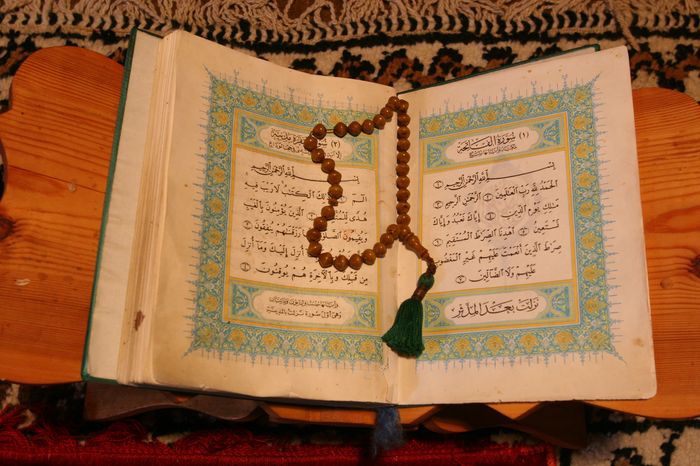 (١) سُورَةُ الْفَاتِحَةِ
بِسْمِ اللَّهِ الرَّحْمَٰنِ الرَّحِيمِ
الْحَمْدُ لِلَّهِ رَبِّ الْعَٰلَمِينَ الرَّحْمَٰنِ الرَّحِيمِ
مَٰلِكِ يَوْمِ الدِّينِ إِيَّاكَ نَعْبُدُ وَإِيَّاكَ
نَسْتَعِينُ اهْدِنَا الصِّرَٰطَ الْمُسْتَقِيمَ
صِرَٰطَ الَّذِينَ أَنْعَمْتَ عَلَيْهِمْ غَيْرِ الْمَغْضُوبِ
عَلَيْهِمْ وَلَا الضَّالِّينَ
نَزَلَتْ بَعْدَ الْمُدَّثِّرِ
(٢) سُورَةُ مَدَنِيَّة
بِسْمِ اللَّهِ الرَّحْمَٰنِ الرَّحِيمِ
الم الْكِتَٰبُ لَا رَيْبَ فِيهِ
هُدًى الَّذِينَ يُؤْمِنُونَ بِالْغَيْبِ
وَيُقِيمُونَ رَزَقْنَٰهُمْ يُنْفِقُونَ
أُنْزِلَ إِلَيْكَ وَمَا أُنْزِلَ
مِن قَبْلِكَ وَبِالْآخِرَةِ هُمْ يُوقِنُونَ
وهي أول سورة نزلت بالمدينة